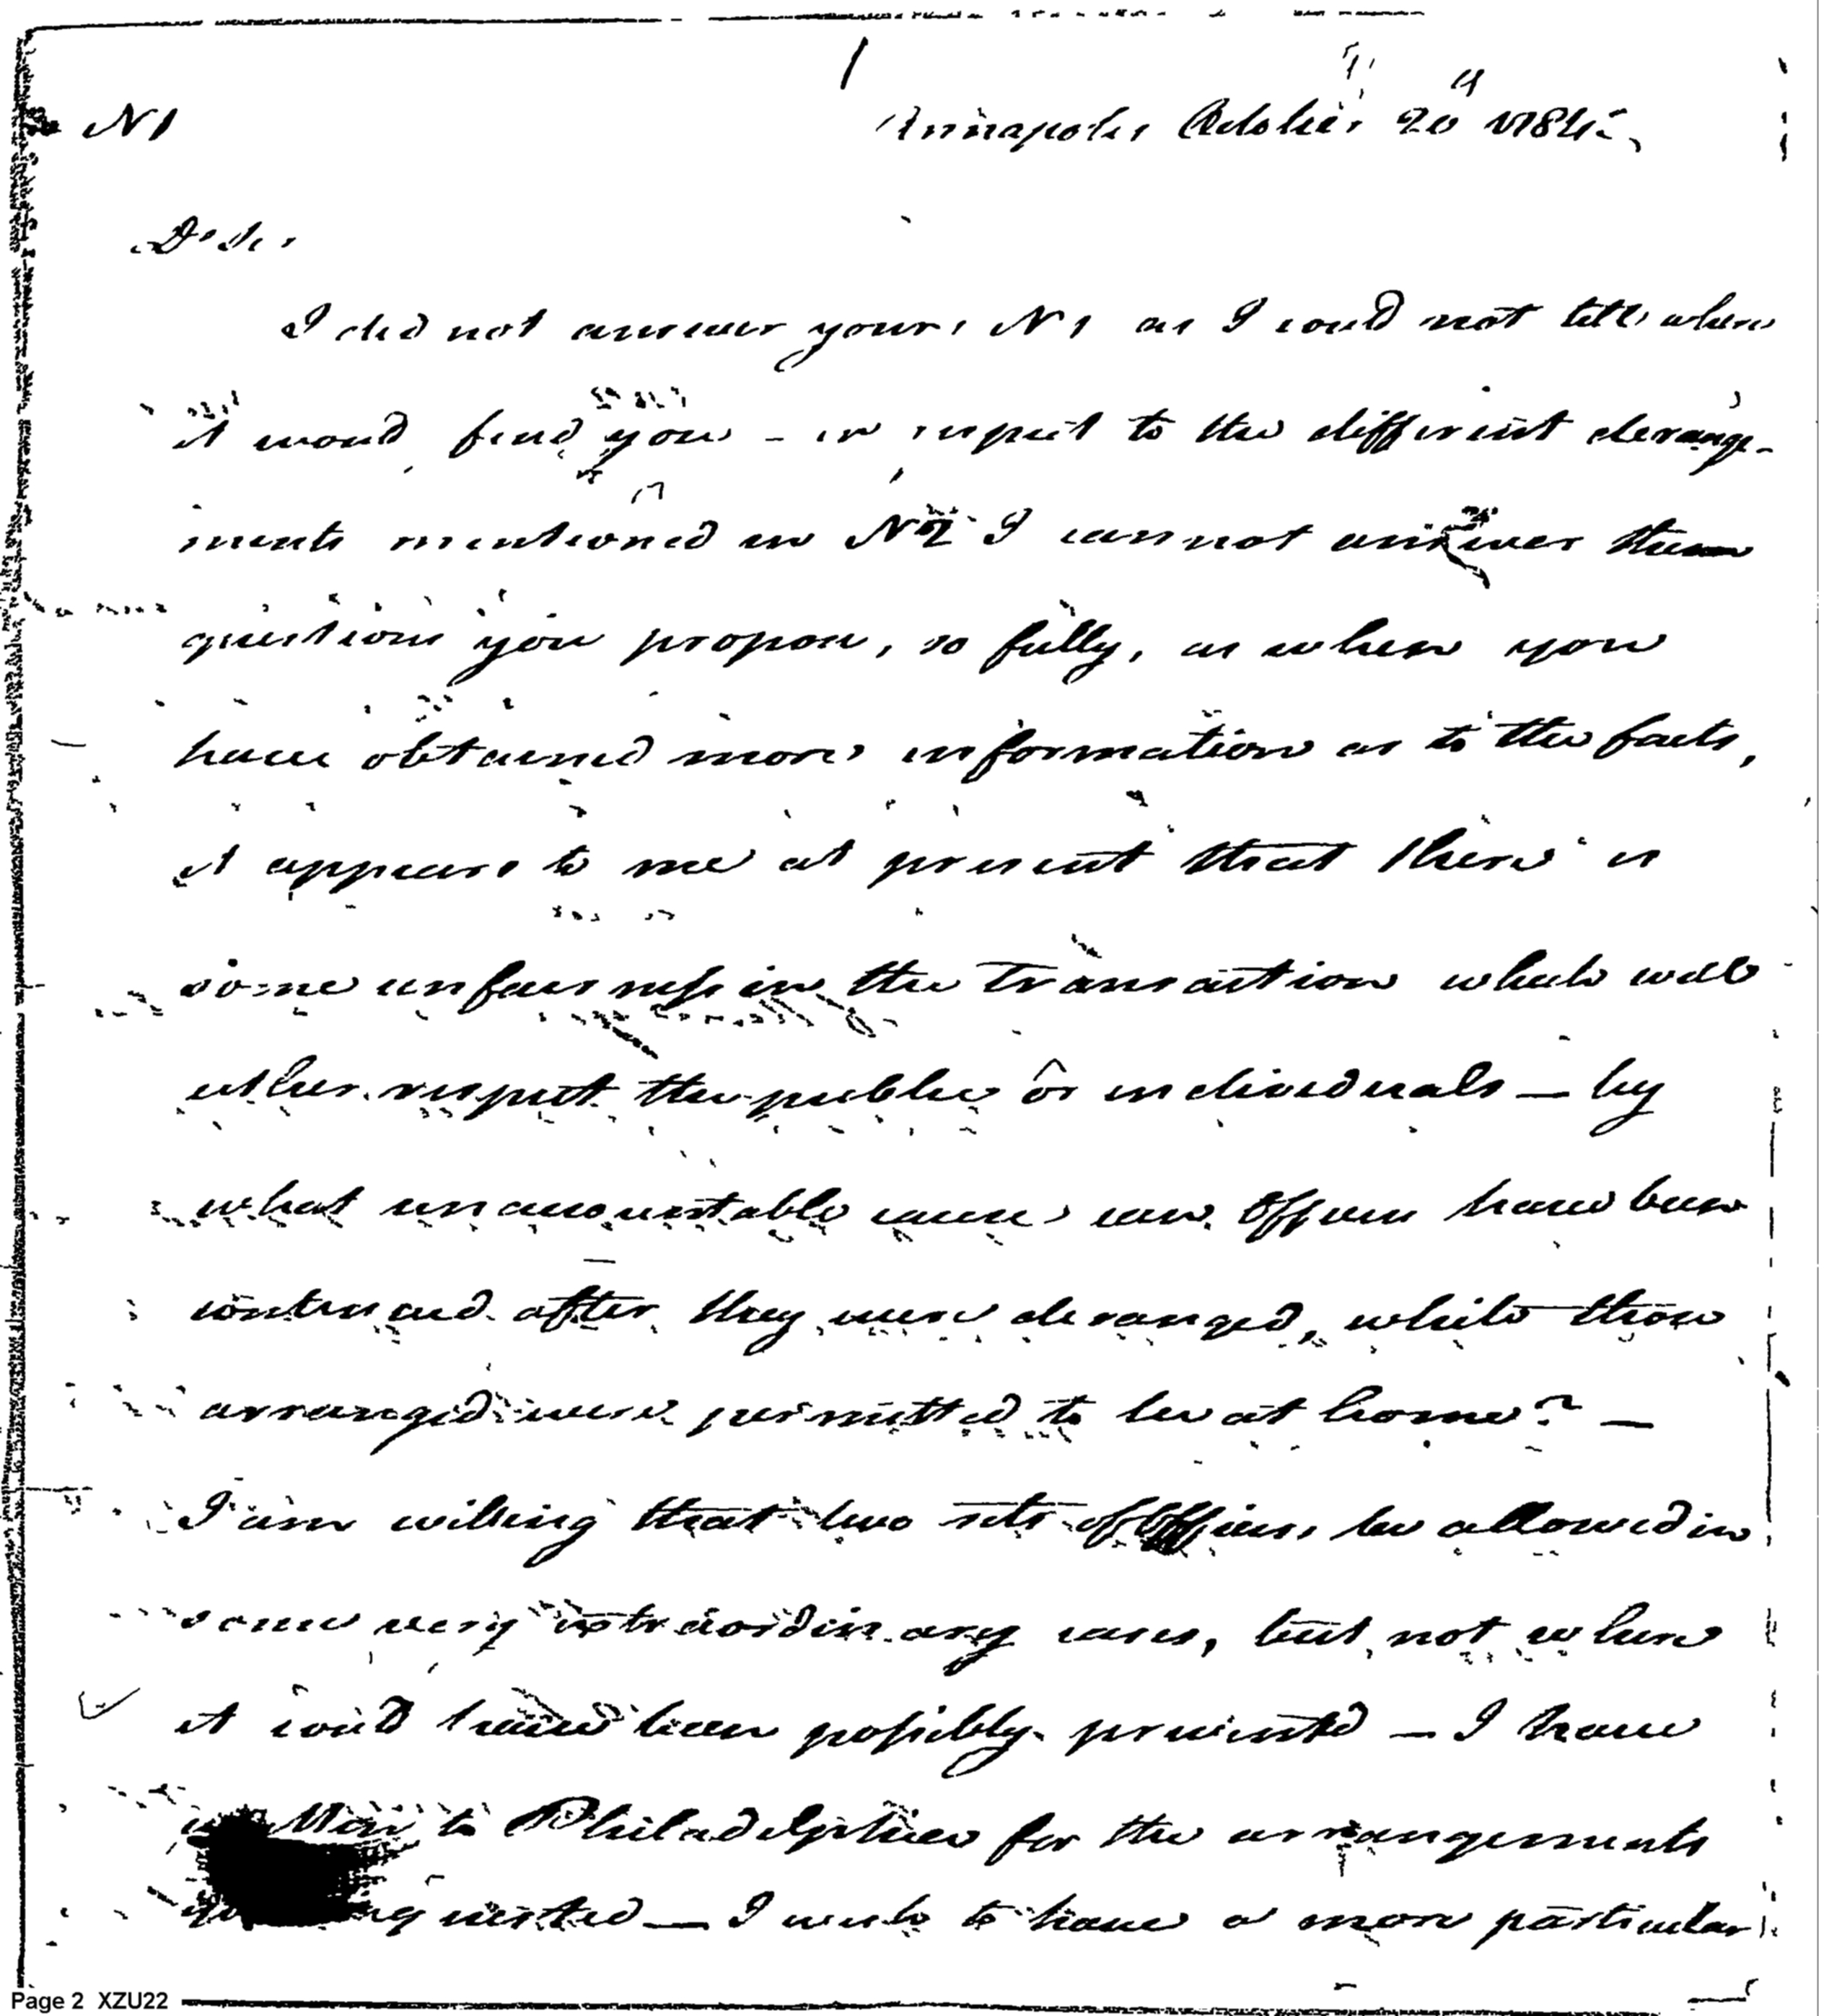 N 1
Annapolis October 20th 1784
Dr Sir
I did not answer yours N 1 as I could not tell where
it would find you - in respect to the different derange-
ments mentioned in N 2 I cannot answer the
questions you propose, so fully, as when you
have obtained more information as to the facts,
it appears to me at present that there is
some unfairness in the transaction which will
either respect the public or individuals — by
what unaccountable cause can Officers have been
continued after they were deranged, while those
arranged were permitted to be at home? —
I am willing that two sets of Officers be allowed in
some very extraordinary cases, but not where
it could have been possibly prevented — I have
written to Philadelphia for the arrangements
requested — I wish to have a more particular
Page 2 XZU22